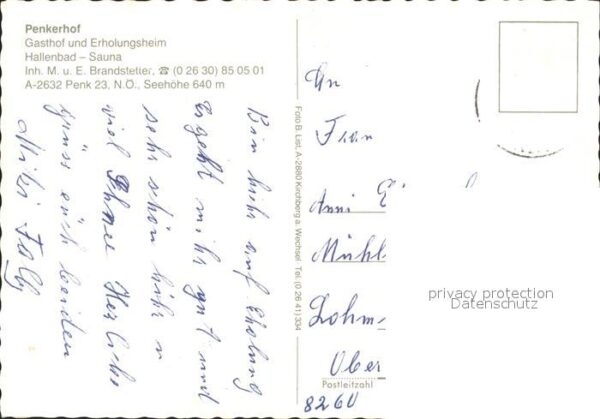 Penkerhof
Gasthof und Erholungsheim
Hallenbad – Sauna
Inh. M. u. E. Brandstetter, ☎ (0 26 30) 85 05 01
A-2632 Penk 23, N.Ö., Seehöhe 640 m
Bin hir auf Eholung
Es geht mihr gut und
sehr schön hihr u
viel Schnee Herliche
grüss euch beiden
Mitzi
Foto B. List, A-2880 Kirchberg a. Wechsel Tel. (0 26 41) 334
An
Frau
Anni
Mühl
Lohm
Ober
Postleitzahl
8260
privacy protection
Datenschutz